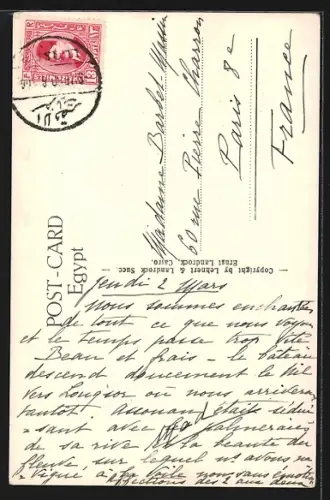 POST-CARD
Egypt
Copyright by Lehnert & Landrock Succ.
Ernst Landrock, Cairo.
Madame Barbet Massin
60 rue Pierre Charron
Paris 8e
France
Jeudi 2 Mars
Nous sommes enchantées
de tout ce que nous voyons
et le temps passe trop vite
Beau et frais - le bateau
descend doucement le Nil
vers Louqsor où nous arriverons
tantôt. Assouan était sédui
- sant avec ses palmeraies
de sa rive la beauté du
fleuve, sur lequel ns avons na
- vigué à la voile nous
affections des 2 aux deux